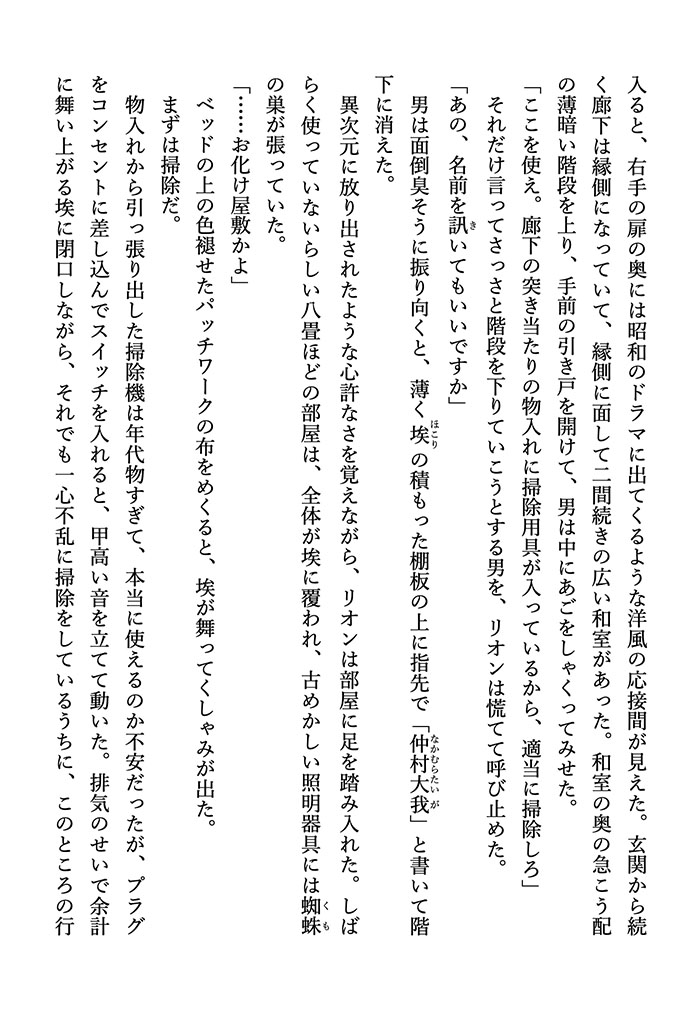 入ると、右手の扉の奥には昭和のドラマに出てくるような洋風の応接間が見えた。玄関から続
く廊下は縁側になっていて、縁側に面して二間続きの広い和室があった。和室の奥の急こう配
の薄暗い階段を上り、手前の引き戸を開けて、男は中にあごをしゃくってみせた。
「ここを使え。廊下の突き当たりの物入れに掃除用具が入っているから、適当に掃除しろ」
それだけ言ってさっさと階段を下りていこうとする男を、リオンは慌てて呼び止めた。
「あの、名前を訊きいてもいいですか」
男は面倒臭そうに振り向くと、薄く埃ほこりの積もった棚板の上に指先で「仲村大我なかむらたいが」と書いて階
下に消えた。
異次元に放り出されたような心許なさを覚えながら、リオンは部屋に足を踏み入れた。しば
らく使っていないらしい八畳ほどの部屋は、全体が埃に覆われ、古めかしい照明器具には蜘蛛くも
の巣が張っていた。
「……お化け屋敷かよ」
ベッドの上の色褪せたパッチワークの布をめくると、埃が舞ってくしゃみが出た。
まずは掃除だ。
物入れから引っ張り出した掃除機は年代物すぎて、本当に使えるのか不安だったが、プラグ
をコンセントに差し込んでスイッチを入れると、甲高い音を立てて動いた。排気のせいで余計
に舞い上がる埃に閉口しながら、それでも一心不乱に掃除をしているうちに、このところの行